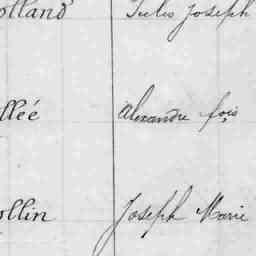 olland Jules Joseph
llée Alexandre fçois
ollin Joseph Marie